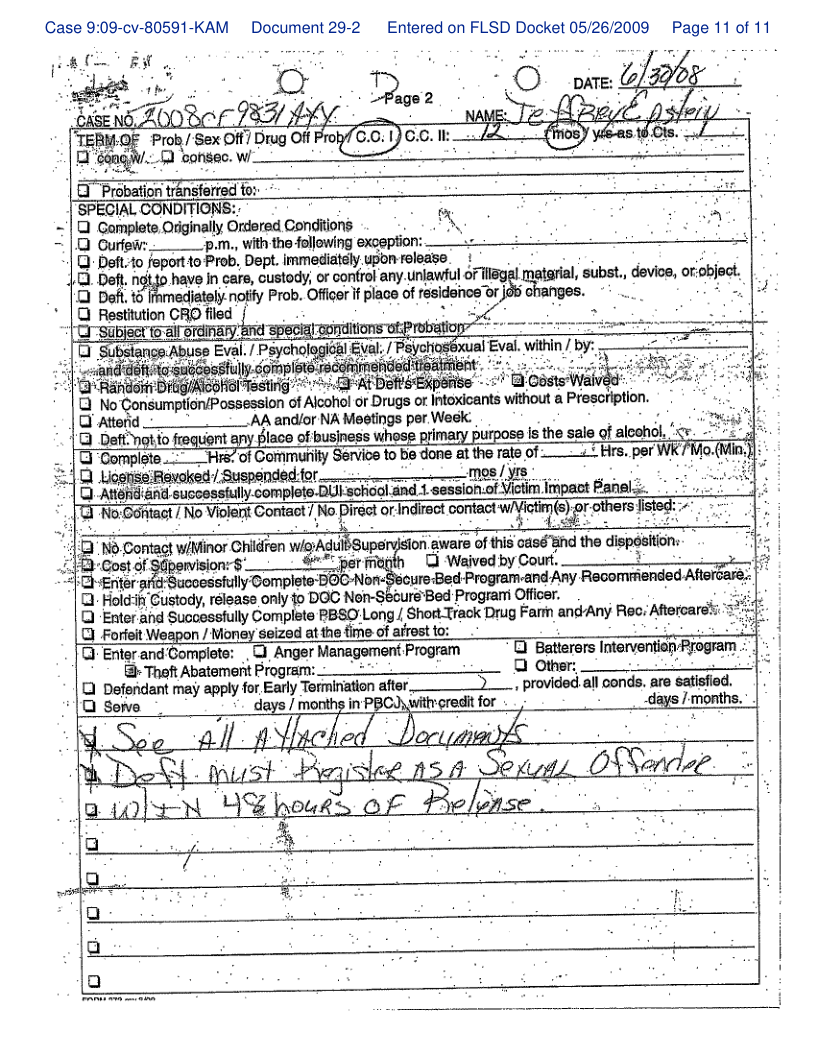 Case 9:09-cv-80591-KAM Document 29-2 Entered on FLSD Docket 05/26/2009 Page 11 of 11
D
Page 2
DATE: 6/30/08
CASE NO. 2008CF9831AXY NAME: Jeffrey Epstein
TERM OF Prob / Sex Off / Drug Off Prob / C.C. I / C.C. II: 12 mos / yrs as to Cts. 1
❑ conc w/. ❑ consec. w/
❑ Probation transferred to:
SPECIAL CONDITIONS:
❑ Complete Originally Ordered Conditions
❑ Curfew: p.m., with the following exception:
❑ Deft. to report to Prob. Dept. immediately upon release
❑ Deft. not to have in care, custody, or control any unlawful or illegal material, subst., device, or object.
❑ Deft. to immediately notify Prob. Officer if place of residence or job changes.
❑ Restitution CRO filed
❑ Subject to all ordinary and special conditions of Probation
❑ Substance Abuse Eval. / Psychological Eval. / Psychosexual Eval. within / by:
and deft. to successfully complete recommended treatment
❑ Random Drug/Alcohol Testing ❑ At Deft's Expense ❑ Costs Waived
❑ No Consumption/Possession of Alcohol or Drugs or Intoxicants without a Prescription.
❑ Attend AA and/or NA Meetings per Week.
❑ Deft. not to frequent any place of business whose primary purpose is the sale of alcohol.
❑ Complete Hrs. of Community Service to be done at the rate of Hrs. per Wk / Mo.(Min.)
❑ License Revoked / Suspended for mos / yrs
❑ Attend and successfully complete DUI school and 1 session of Victim Impact Panel
❑ No Contact / No Violent Contact / No Direct or Indirect contact w/Victim(s) or others listed:
❑ No Contact w/Minor Children w/o Adult Supervision aware of this case and the disposition.
❑ Cost of Supervision: $ per month ❑ Waived by Court.
❑ Enter and Successfully Complete DOC Non-Secure Bed Program and Any Recommended Aftercare.
❑ Hold in Custody, release only to DOC Non-Secure Bed Program Officer.
❑ Enter and Successfully Complete PBSO Long / Short Track Drug Farm and Any Rec. Aftercare
❑ Forfeit Weapon / Money seized at the time of arrest to:
❑ Enter and Complete: ❑ Anger Management Program ❑ Batterers Intervention Program
❑ Theft Abatement Program: ❑ Other:
❑ Defendant may apply for Early Termination after , provided all conds. are satisfied.
❑ Serve days / months in PBCJ, with credit for days / months.
See All Attached Documents
Deft must Register AS A Sexual Offender
❑ W/IN 48 hours OF Release.
❑
❑
❑
❑
❑